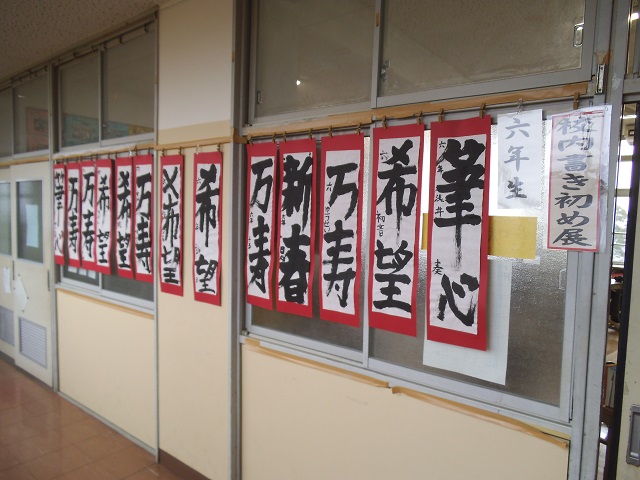 校内書き初め展
六年生
筆心
希望
初音
万寿
新春
万寿
希望
希望
万寿
希望
希望
万寿
万寿
筆心